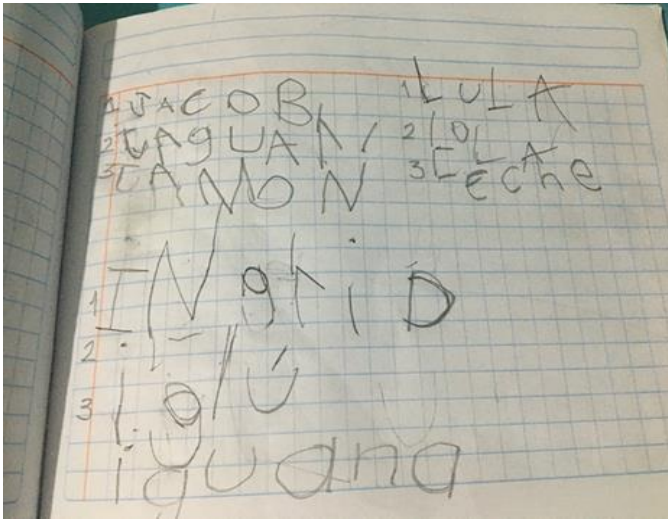 1 JACOB
2 JAgUAR
3 JAMON
1 LULA
2 lOLA
3 LEChe
1 INgriD
2 iglú
3 iguana